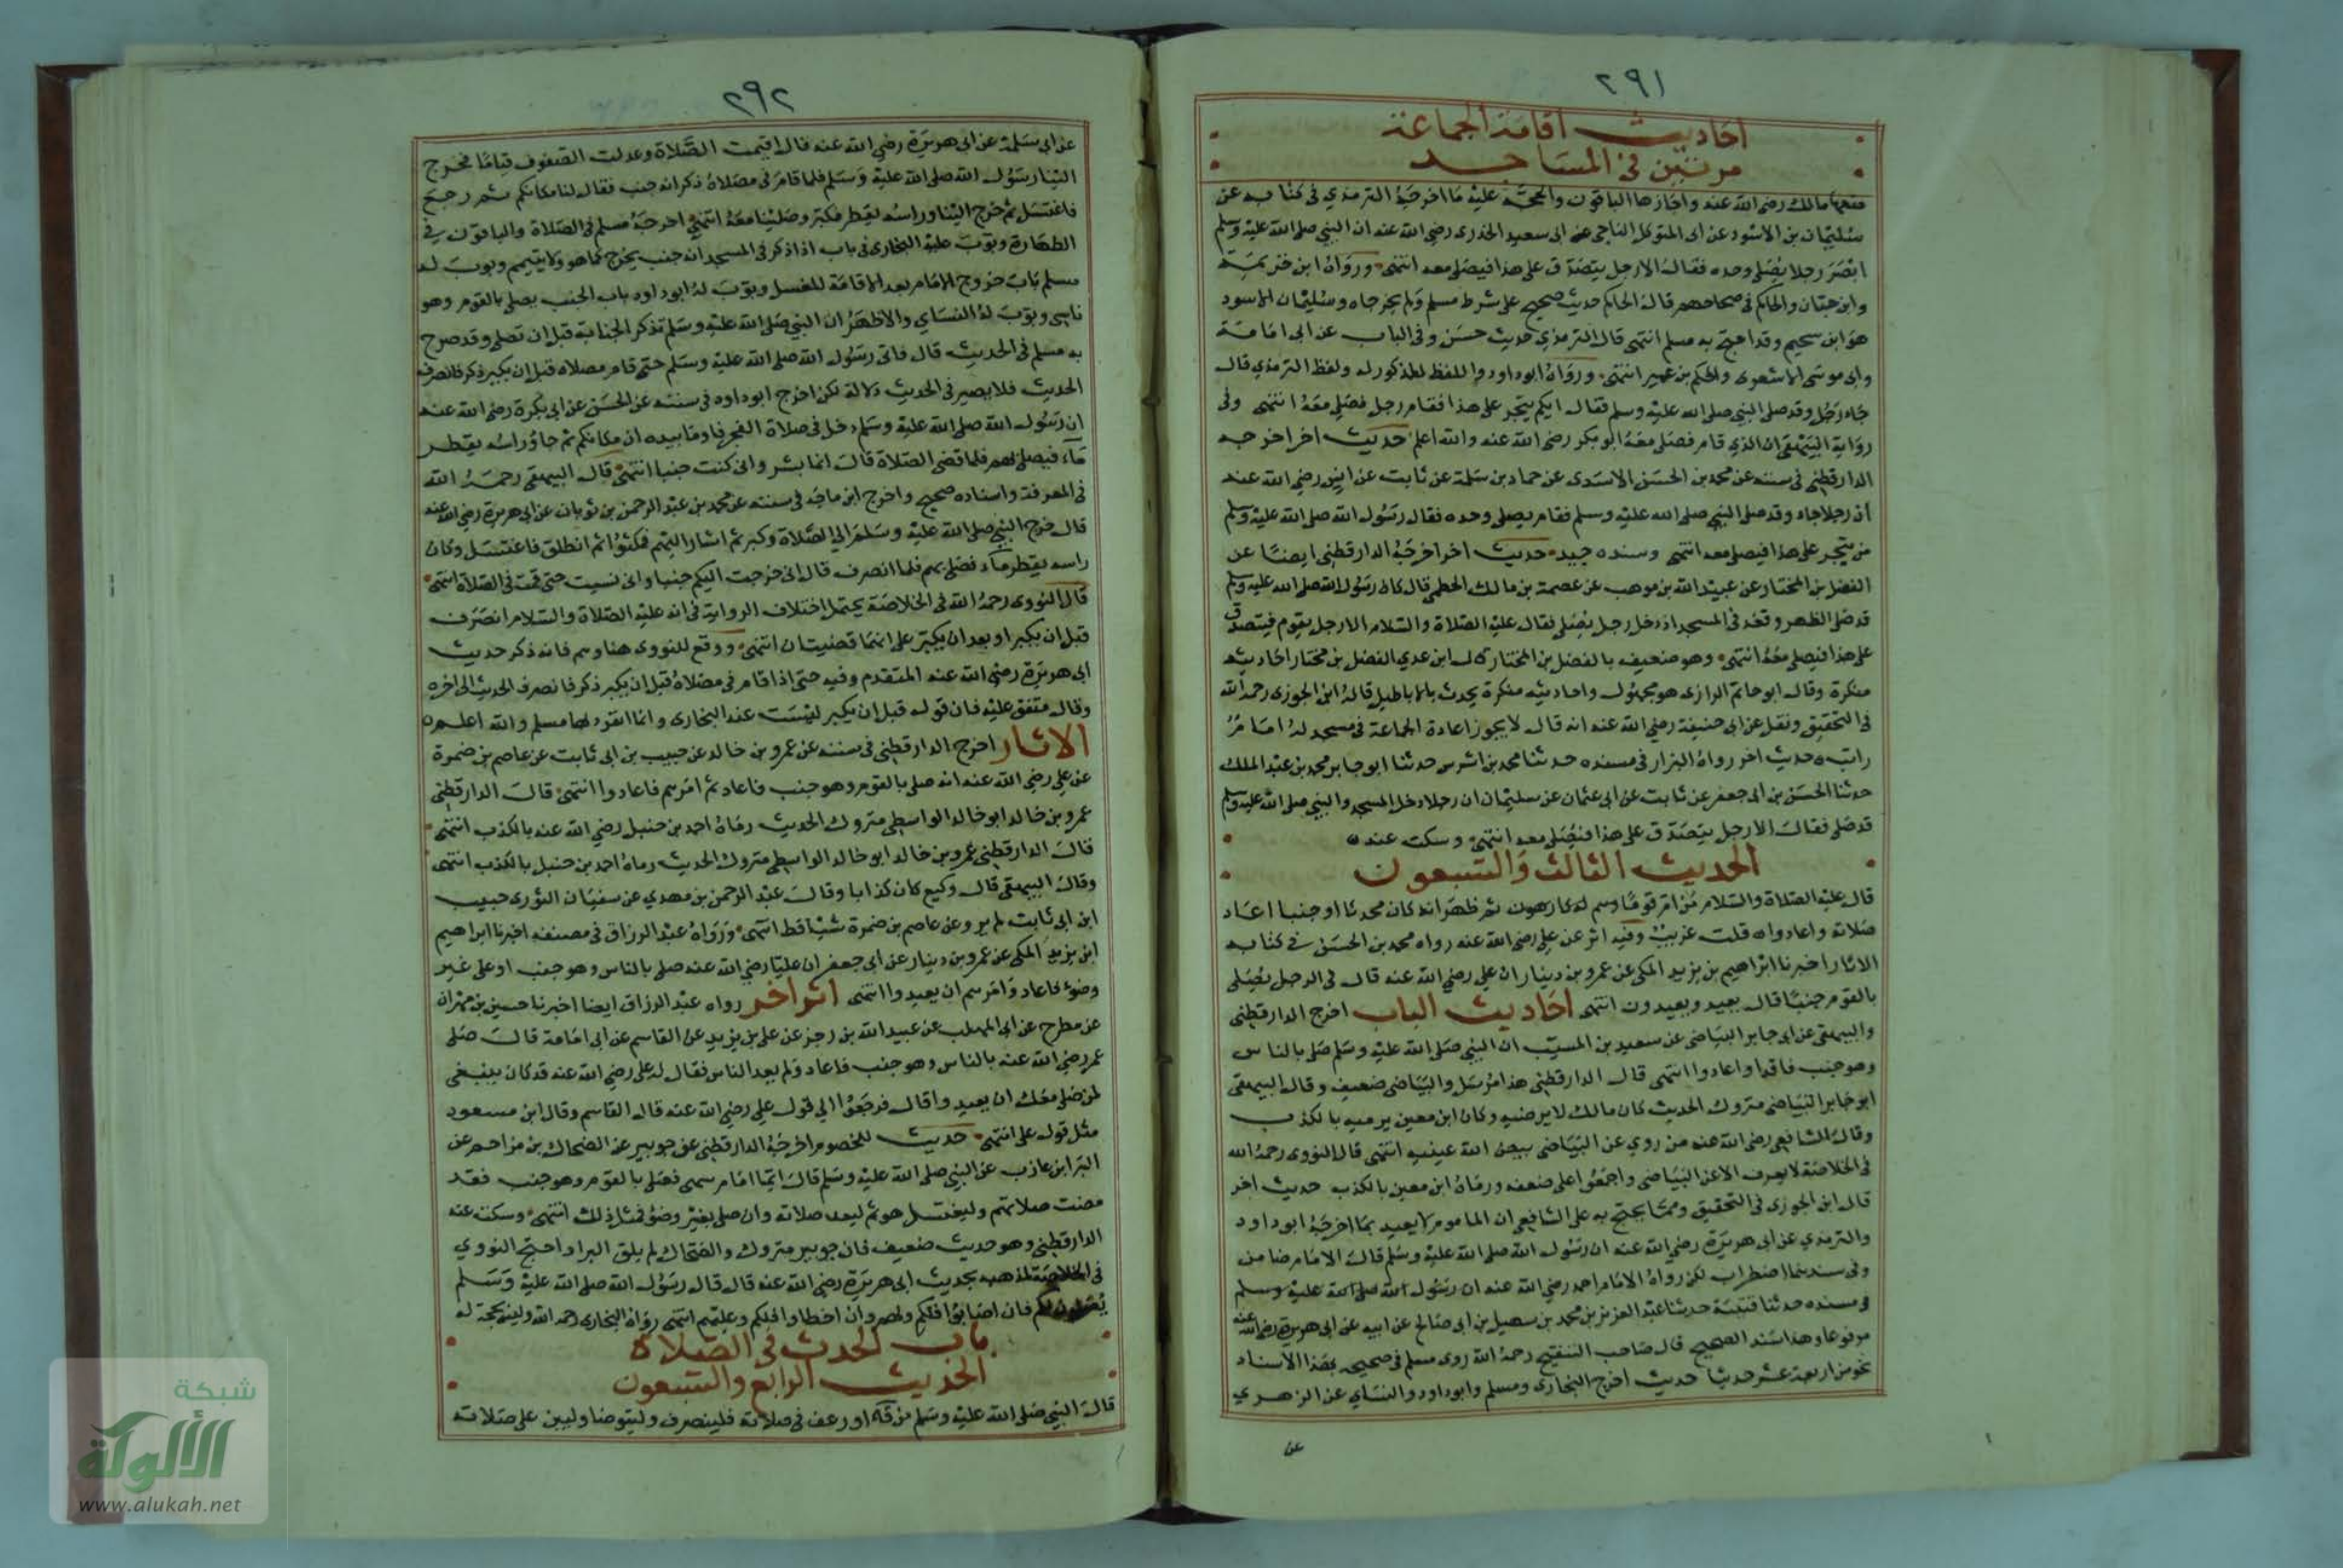 ٢٩١
احاديث اقامة الجماعة
مرتين في المساجد
منعها مالك رضي الله عنه واجازها الباقون والحجة عليه ما اخرجه الترمذي في كتابه عن
سليمان بن الاسود عن ابي المتوكل الناجي عن ابي سعيد الخدري رضي الله عنه ان النبي صلى الله عليه وسلم
ابصر رجلا يصلي وحده فقال الا رجل يتصدق على هذا فيصلي معه انتهى ورواه ابن خزيمة
وابن حبان والحاكم في صحاحهم قال الحاكم حديث صحيح على شرط مسلم ولم يخرجاه وسليمان الاسود
هو ابن سحيم وقد احتج به مسلم انتهى قال الترمذي حديث حسن وفي الباب عن ابي امامة
وابي موسى الاشعري والحكم بن عمير انتهى ورواه ابو داود واللفظ المذكور له ولفظ الترمذي قال
جاء رجل وقد صلى النبي صلى الله عليه وسلم فقال ايكم يتجر على هذا فقام رجل فصلى معه انتهى وفي
رواية البيهقي ان الذي قام فصلى معه ابو بكر رضي الله عنه والله اعلم حديث اخر اخرجه
الدارقطني في سننه عن محمد بن الحسن الاسدي عن حماد بن سلمة عن ثابت عن انس رضي الله عنه
ان رجلا جاء وقد صلى النبي صلى الله عليه وسلم فقام يصلي وحده فقال رسول الله صلى الله عليه وسلم
من يتجر على هذا فيصلي معه انتهى وسنده جيد حديث اخر اخرجه الدارقطني ايضا عن
الفضل بن المختار عن عبيد الله بن موهب عن عصمة بن مالك الخطمي قال كان رسول الله صلى الله عليه وسلم
قد صلى الظهر وقعد في المسجد اذ دخل رجل يصلي فقال عليه الصلاة والسلام الا رجل يقوم فيتصدق
على هذا فيصلي معه انتهى وهو ضعيف بالفضل بن المختار قال ابن عدي الفضل بن مختار احاديثه
منكرة وقال ابو حاتم الرازي هو مجهول واحاديثه منكرة يحدث بالاباطيل قاله ابن الجوزي رحمه الله
في التحقيق ونقل عن ابي حنيفة رضي الله عنه انه قال لا يجوز اعادة الجماعة في مسجد له امام
راتب حديث اخر رواه البزار في مسنده حدثنا محمد بن اشرس حدثنا ابو جابر محمد بن عبد الملك
حدثنا الحسن بن ابي جعفر عن ثابت عن ابي عثمان عن سليمان ان رجلا دخل المسجد والنبي صلى الله عليه وسلم
قد صلى فقال الا رجل يتصدق على هذا فيصلي معه انتهى وسكت عنه ٥
الحديث الثالث والتسعون
قال عليه الصلاة والسلام من ام قوما وهم له كارهون ثم ظهر انه كان محدثا او جنبا اعاد
صلاته واعادوا قلت غريب وفيه اثر عن علي رضي الله عنه رواه محمد بن الحسن في كتاب
الاثار اخبرنا ابراهيم بن يزيد المكي عن عمرو بن دينار ان علي رضي الله عنه قال في الرجل يصلي
بالقوم جنبا قال يعيد ويعيدون انتهى احاديث الباب اخرج الدارقطني
والبيهقي عن ابي جابر البياضي عن سعيد بن المسيب ان النبي صلى الله عليه وسلم صلى بالناس
وهو جنب فاعاد واعادوا انتهى قال الدارقطني هذا مرسل والبياضي ضعيف وقال البيهقي
ابو جابر البياضي متروك الحديث كان مالك لا يرضيه وكان ابن معين يرميه بالكذب
وقال الشافعي رضي الله عنه من روى عن البياضي بيض الله عينيه انتهى قال النووي رحمه الله
في الخلاصة لا يعرف الا عن البياضي واجمعوا على ضعفه ورماه ابن معين بالكذب حديث اخر
قال ابن الجوزي في التحقيق ومما يحتج به على الشافعي ان الماموم لا يعيد بما اخرجه ابو داود
والترمذي عن ابي هريرة رضي الله عنه ان رسول الله صلى الله عليه وسلم قال الامام ضامن
وفي سندهما اضطراب لكن رواه الامام احمد رضي الله عنه ان رسول الله صلى الله عليه وسلم
في مسنده حدثنا قتيبة حدثنا عبد العزيز بن محمد بن سهيل بن ابي صالح عن ابيه عن ابي هريرة رضي الله عنه
مرفوعا وهذا سند الصحيح قال صاحب التنقيح رحمه الله روى مسلم في صحيحه بهذا الاسناد
نحو من اربعة عشر حديثا حديث اخرج البخاري ومسلم وابو داود والنساي عن الزهري
عن
٢٩٢
عن ابي سلمة عن ابي هريرة رضي الله عنه قال اقيمت الصلاة وعدلت الصفوف قياما فخرج
الينا رسول الله صلى الله عليه وسلم فلما قام في مصلاه ذكر انه جنب فقال لنا مكانكم ثم رجع
فاغتسل ثم خرج الينا وراسه يقطر فكبر وصلينا معه انتهى اخرجه مسلم في الصلاة والباقون في
الطهارة وبوب عليه البخاري في باب اذا ذكر في المسجد انه جنب يخرج كما هو ولا يتيمم وبوب له
مسلم باب خروج الامام بعد الاقامة للغسل وبوب له ابو داود باب الجنب يصلي بالقوم وهو
ناسي وبوب له النساي والاظهر ان النبي صلى الله عليه وسلم تذكر الجنابة قبل ان تصلي وقد صرح
به مسلم في الحديث قال فاتى رسول الله صلى الله عليه وسلم حتى قام مصلاه قبل ان يكبر ذكر فانصرف
الحديث فلا يصير في الحديث دلالة لكن اخرج ابو داود في سننه عن الحسن عن ابي بكرة رضي الله عنه
ان رسول الله صلى الله عليه وسلم دخل في صلاة الفجر فاوما بيده ان مكانكم ثم جاء وراسه يقطر
ماء فيصلي بهم فلما قضى الصلاة قال انما بشر واني كنت جنبا انتهى قال البيهقي رحمه الله
في المعرفة واسناده صحيح واخرج ابن ماجه في سننه عن محمد بن عبد الرحمن بن ثوبان عن ابي هريرة رضي الله عنه
قال خرج النبي صلى الله عليه وسلم الي الصلاة وكبر ثم اشار اليهم فمكثوا ثم انطلق فاغتسل وكان
راسه يقطر ماء فصلى بهم فلما انصرف قال اني خرجت اليكم جنبا واني نسيت حتى قمت في الصلاة انتهى
قال النووي رحمه الله في الخلاصة يحتمل اختلاف الرواية في انه عليه الصلاة والسلام انصرف
قبل ان يكبر او بعد ان يكبر على انهما قضيتان انتهى ووقع للنووي هنا وهم فانه ذكر حديث
ابي هريرة رضي الله عنه المتقدم وفيه حتى اذا قام في مصلاه قبل ان يكبر ذكر فانصرف الحديث الى اخره
وقال متفق عليه فان قوله قبل ان يكبر ليست عند البخاري وانما انفرد بها مسلم والله اعلم ٥
الاثار اخرج الدارقطني في سننه عن عمرو بن خالد عن حبيب بن ابي ثابت عن عاصم بن ضمرة
عن علي رضي الله عنه انه صلى بالقوم وهو جنب فاعاد ثم امرهم فاعادوا انتهى قال الدارقطني
عمرو بن خالد ابو خالد الواسطي متروك الحديث رماه احمد بن حنبل رضي الله عنه بالكذب انتهى
قال الدارقطني عمرو بن خالد ابو خالد الواسطي متروك الحديث رماه احمد بن حنبل بالكذب انتهى
وقال البيهقي قال وكيع كان كذابا وقال عبد الرحمن بن مهدي عن سفيان الثوري حبيب
ابن ابي ثابت لم يرو عن عاصم بن ضمرة شيئا قط انتهى ورواه عبد الرزاق في مصنفه اخبرنا ابراهيم
ابن يزيد المكي عن عمرو بن دينار عن ابي جعفر ان عليا رضي الله عنه صلى بالناس وهو جنب او على غير
وضوء فاعاد وامرهم ان يعيدوا انتهى اثر اخر رواه عبد الرزاق ايضا اخبرنا حسين بن مهران
عن مطرح عن ابي المهلب عن عبيد الله بن زحر عن علي بن يزيد عن القاسم عن ابي امامة قال صلى
عمر رضي الله عنه بالناس وهو جنب فاعاد ولم يعد الناس فقال له علي رضي الله عنه قد كان ينبغي
لمن صلى معك ان يعيدوا قال فرجعوا الي قول علي رضي الله عنه قال القاسم وقال ابن مسعود
مثل قول علي انتهى حديث للخصوم اخرجه الدارقطني عن جويبر عن الضحاك بن مزاحم عن
البرا بن عازب عن النبي صلى الله عليه وسلم قال ايما امام سهى فصلى بالقوم وهو جنب فقد
مضت صلاتهم وليغتسل هو ثم ليعد صلاته وان صلى بغير وضوء فمثل ذلك انتهى وسكت عنه
الدارقطني وهو حديث ضعيف فان جويبر متروك والضحاك لم يلق البرا واحتج النووي
في الخلاصة لمذهبه بحديث ابي هريرة رضي الله عنه قال قال رسول الله صلى الله عليه وسلم
يصلون لكم فان اصابوا فلكم ولهم وان اخطاوا فلكم وعليهم انتهى رواه البخاري رحمه الله وليس بحجة له
باب الحدث في الصلاة
الحديث الرابع والتسعون
قال النبي صلى الله عليه وسلم من قاء او رعف في صلاته فلينصرف وليتوضا وليبن على صلاته
شبكة
الألوكة
www.alukah.net